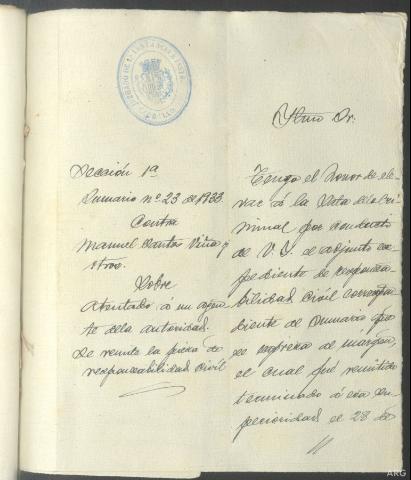 Sección 1ª
Sumario nº 23 de 1933.
Contra
Manuel Santos Viña y
otros.
Sobre
Atentado á un agen-
te de la autoridad.
Se remite la pieza de
responsabilidad civil
Iltmo Sr.
Tengo el honor de ele-
var á la Sala de lo Cri-
minal por conducto
de V. I. el adjunto ex-
pediente de responsa-
bilidad civil correspon-
diente al Sumario que
se expresa al margen,
el cual fué remitido
terminado á esa Su-
perioridad el 28 de
ARG